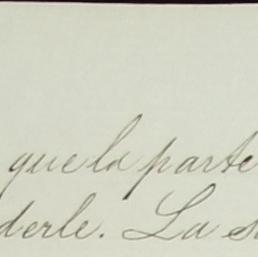 que la parte
derle. La s